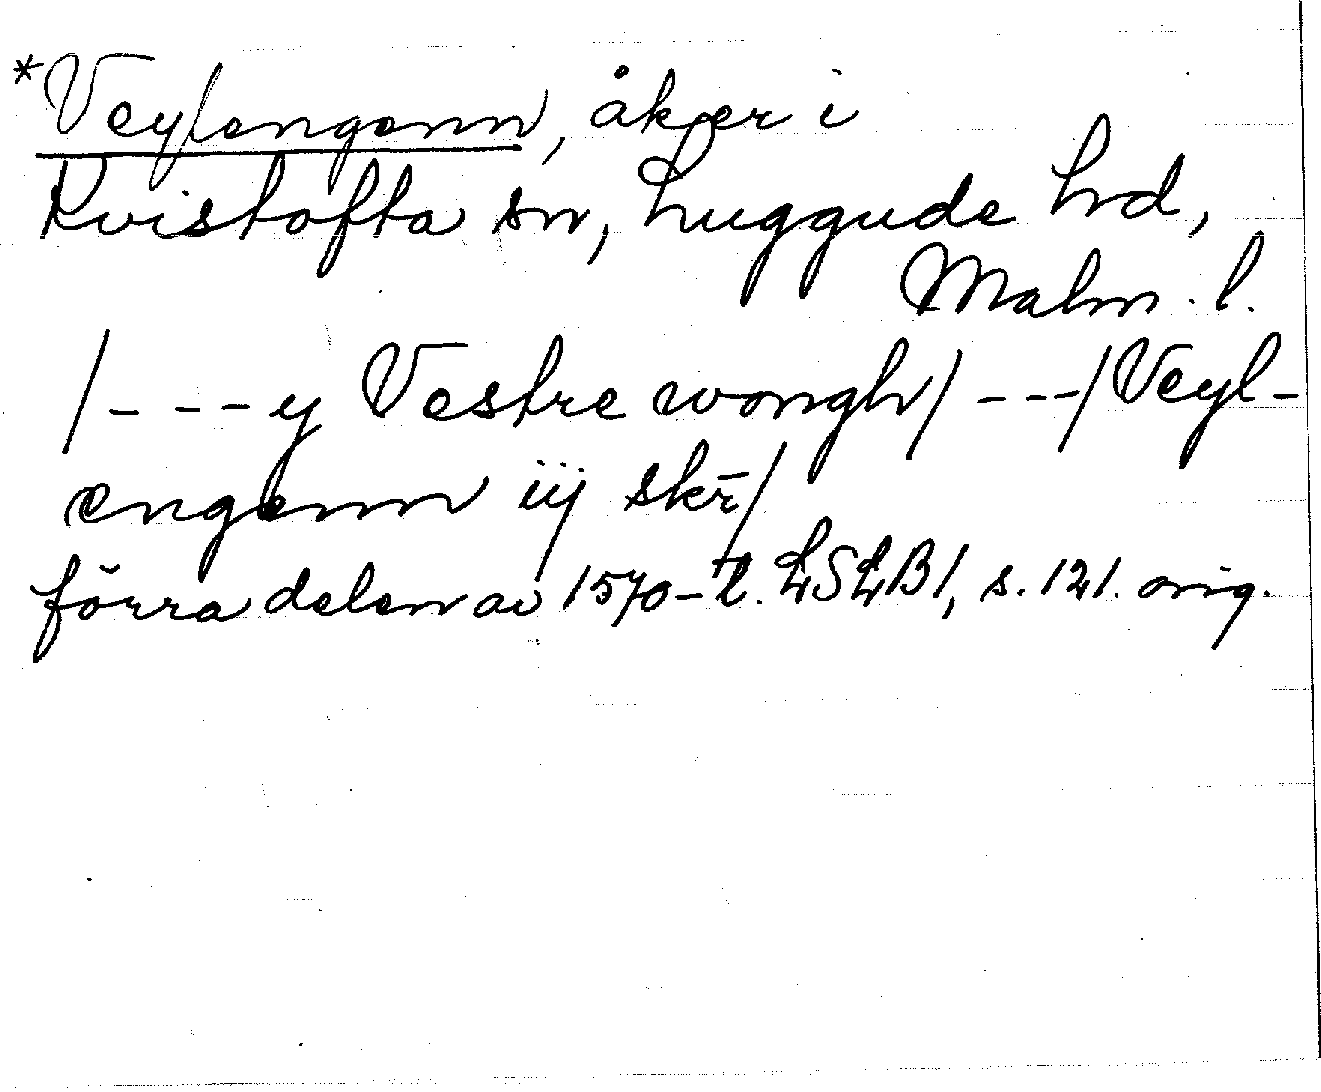 *Veylengenn, åker i
Kvistofta sn, Luggude hrd,
Malm. l.
/- - - y Vestre wongh/ - - -/ Veyl-
engenn iij skr̄/
förra delen av 1570-t. LSLB1, s. 121. orig.